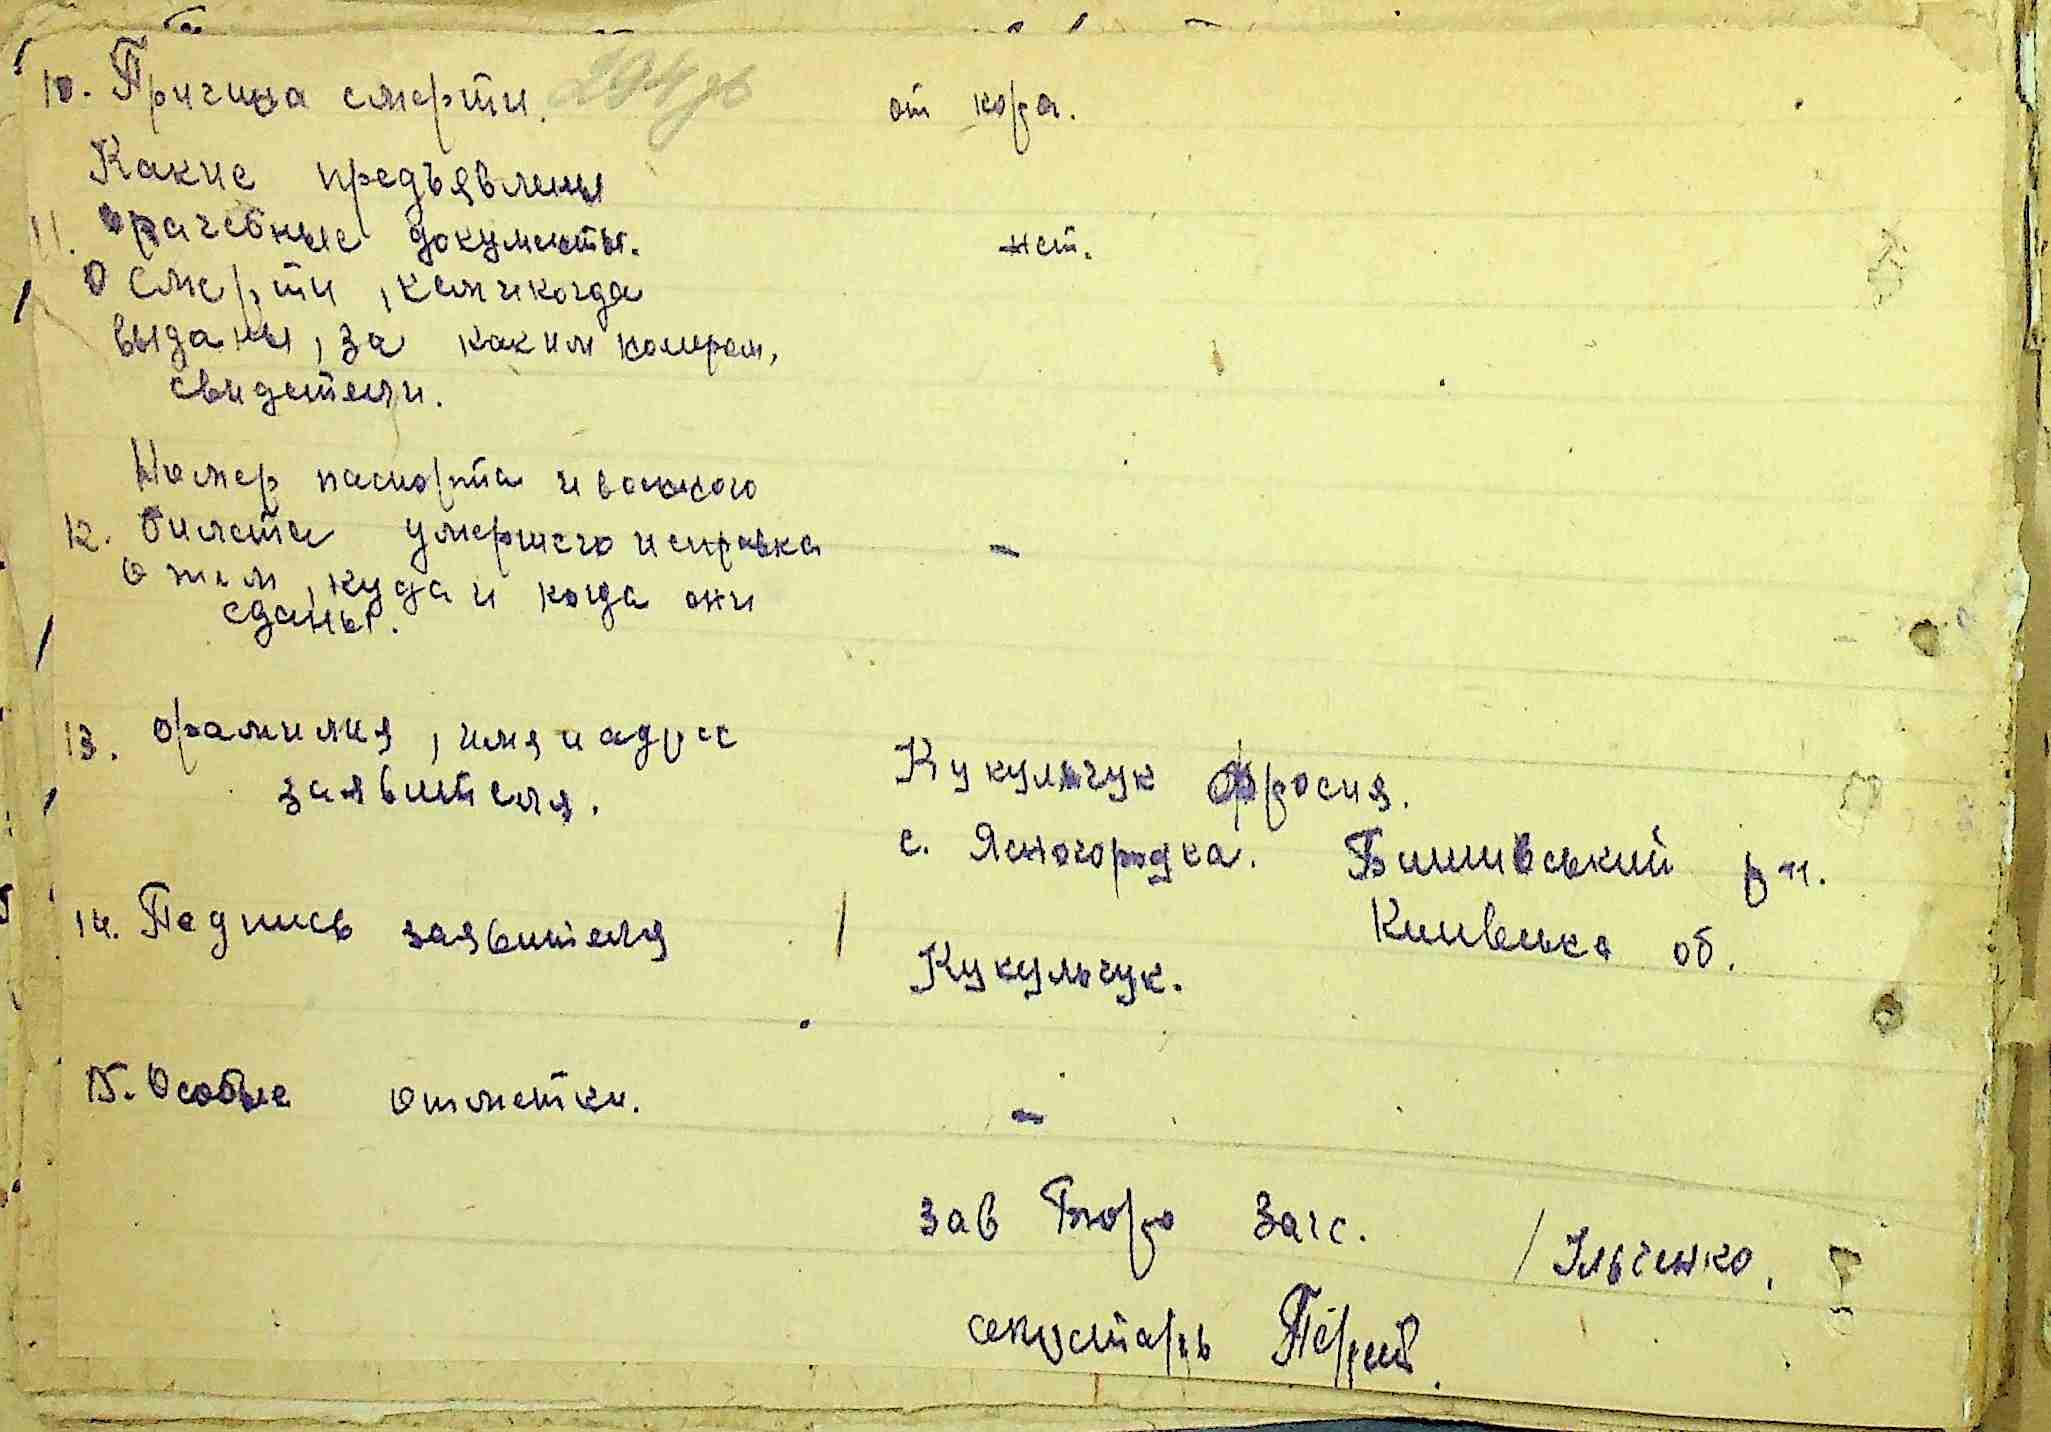 10. Причина смерти. 294 зв от кора.
Какие предъявлены
11. врачебные документы. нет.
о смерти, кем и когда
выданы, за каким номером,
свидетели.
Номер паспорта и военного
12. билета умершего и справка –
о том, куда и когда они
сданы.
13. Фамилия, имя и адрес Кукульчук Фросия.
заявителя.
с. Ясногородка. Бишівський р-н.
14. Подпись заявителя / Київська об.
Кукульчук.
15. Особые отметки. –
зав Бюро Загс. / Ільченко.
секретарь